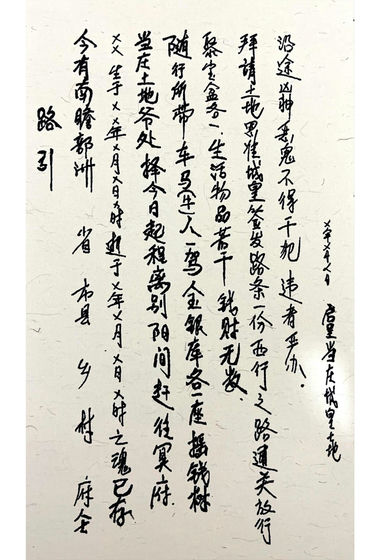 路引
今有南瞻部洲 省 市县 乡 村 府舍
××生于××年×月×日×时逝于×年×月×日×时之魂已存
当庄土地爷处择今日起程离别阳间赶往冥府
随行所带车马连人一驾金银库各一座摇钱树
聚宝盆各一、生活物品若干钱财无数.
拜請土地恩准城皇签发路条一份西行之路通关放行
沿途凶神恶鬼不得干犯违者严办.
×年×月×日 启呈当庄城皇土地